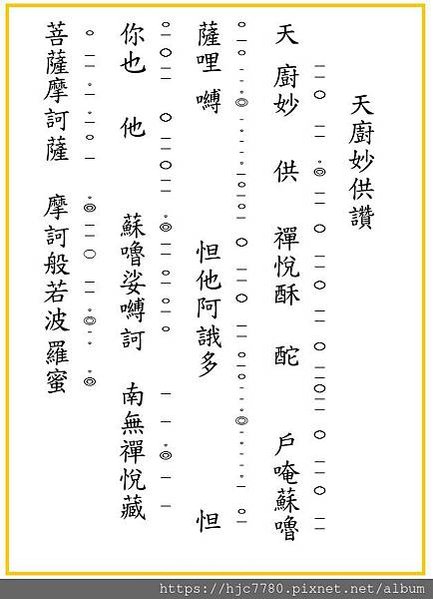 天廚妙供讚
天廚妙供禪悅酥酡戶唵蘇嚕
薩哩嚩怛他阿誐多怛
你也他蘇嚕娑嚩訶南無禪悅藏
菩薩摩訶薩摩訶般若波羅蜜
https://hjc7780.pixnet.net/album